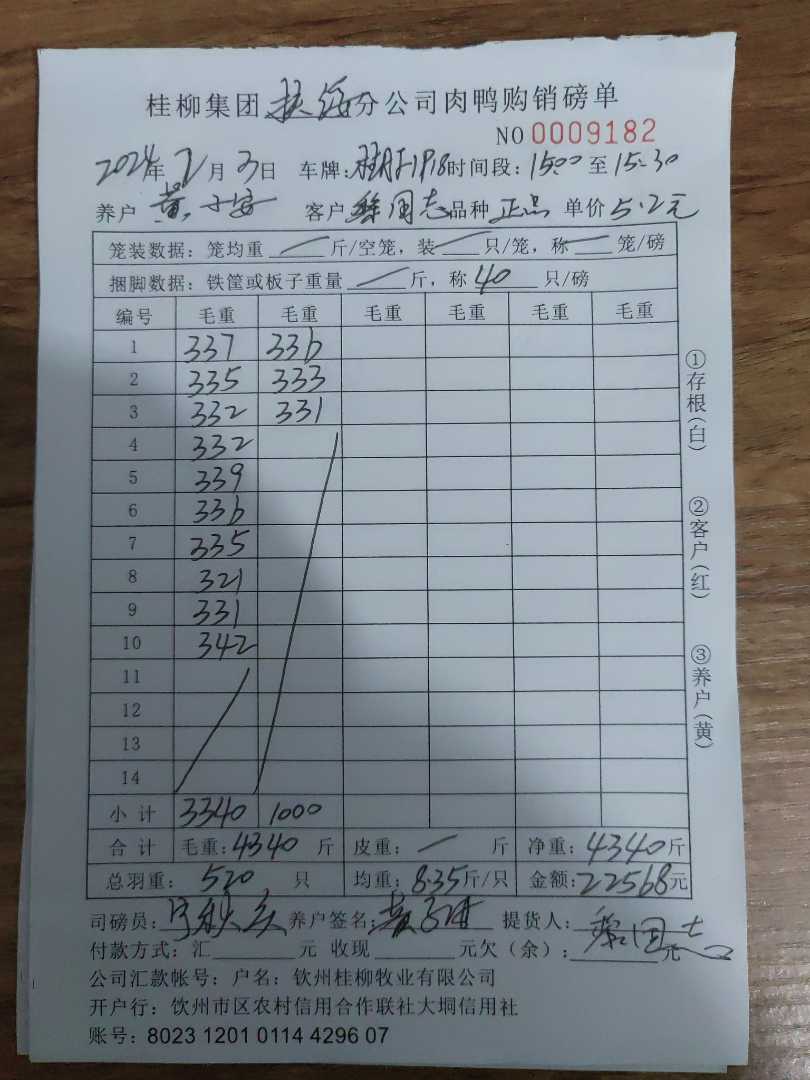 桂柳集团扶绥分公司肉鸭购销磅单
NO 0009182
2024年2月3日 车牌: 时间段:15:00至15:30
养户 黄 客户 黎国志 品种 正品 单价5.2元
笼装数据:笼均重 — 斤/空笼,装 — 只/笼,称 — 笼/磅
捆脚数据:铁筐或板子重量 — 斤,称 40 只/磅
编号 毛重 毛重 毛重 毛重 毛重 毛重
1 337 336
2 335 333
3 332 331
4 332
5 339
6 336
7 335
8 321
9 331
10 342
11
12
13
14
小 计 3340 1000
合 计 毛重:4340 斤 皮重: — 斤 净重:4340斤
总羽重: 520 只 均重:8.35斤/只 金额:22568元
司磅员: 养户签名:黄 提货人:黎国志
付款方式:汇 元 收现 元欠(余): 元
公司汇款帐号:户名:钦州桂柳牧业有限公司
开户行:饮州市区农村信用合作联社大垌信用社
账号:8023 1201 0114 4296 07
①存根(白)
②客户(红)
③养户(黄)